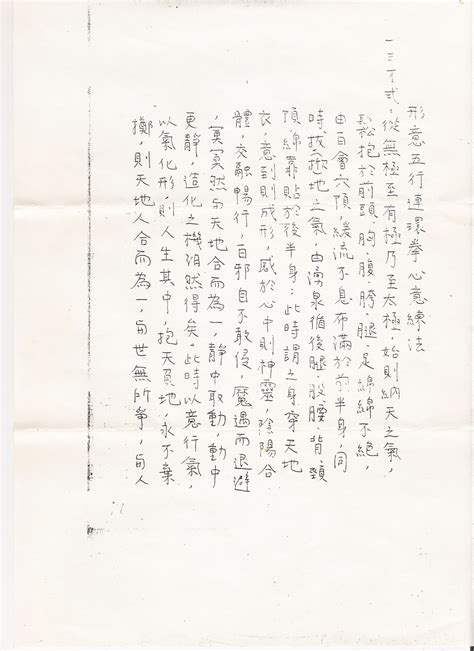 形意五行連環拳心意練法
一三才式:從無極至有極乃至太極,始則納天之氣,
鬆抱於前頭、胸、腹、胯、腿、足綿綿不絕,
由百會六頂,緩流不息布滿於前半身,同
時拔掀地之氣,由湧泉循後腿、股、腰、背、頸
頂,綿靠貼於後半身;此時謂之身穿天地
衣,意到則成形,感於心中則神靈,陰陽合
體,交融暢行,百邪自不敢侵,魔遇而退避
,寞寞然与天地合而為一,靜中取動,動中
更靜,造化之機消然得矣。此時以意行氣,
以氣化形,則人生其中,抱天負地,永不棄
擲,則天地人合而為一,与世無所爭,与人